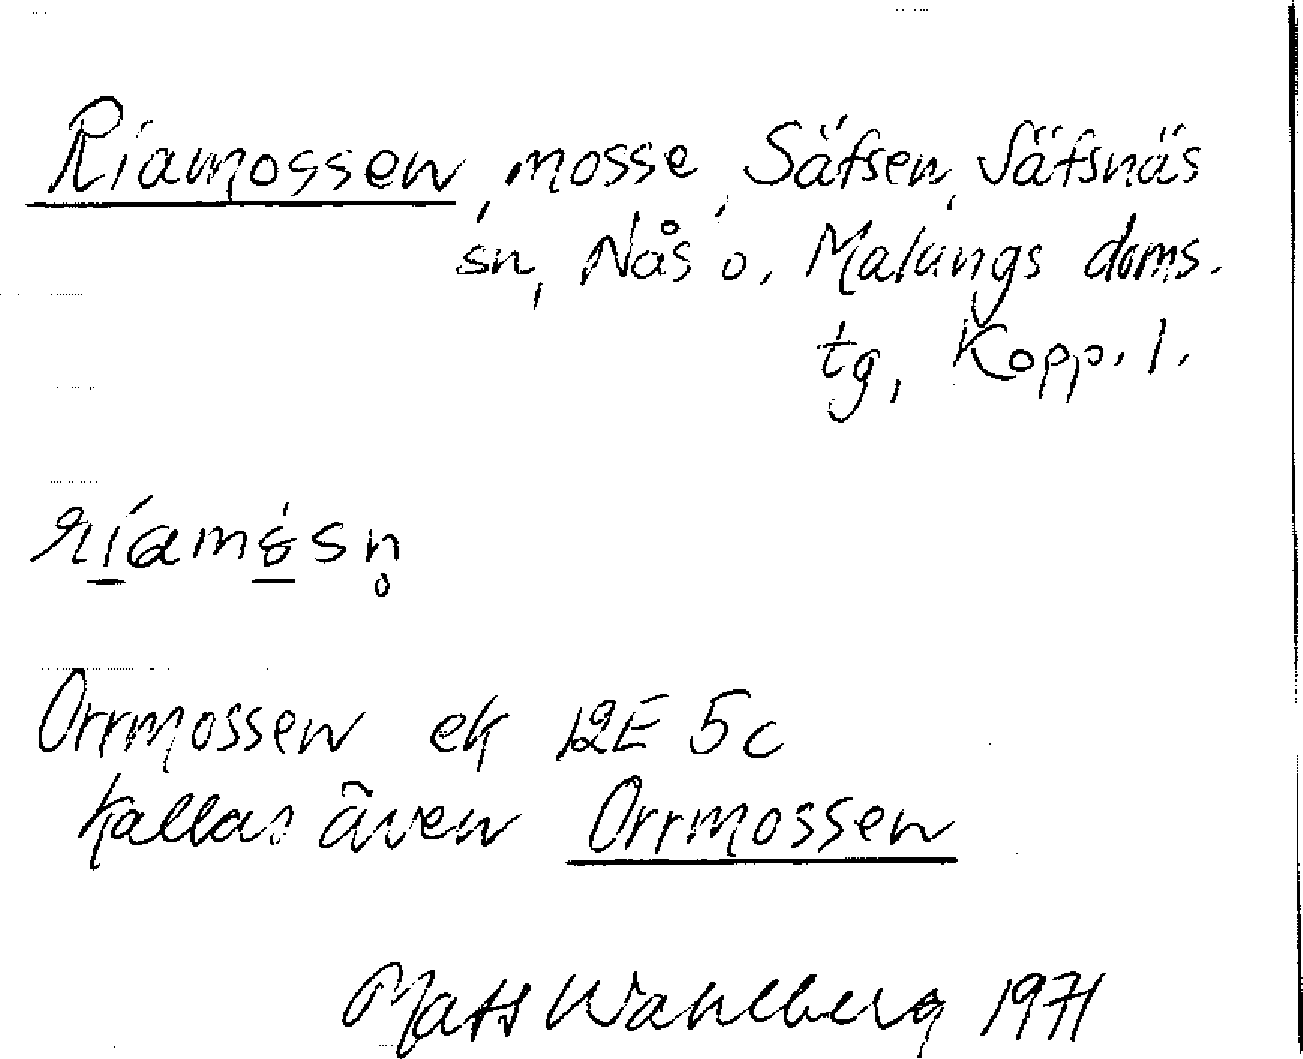 Riamossen, mosse, Säfsen, Säfsnäs
sn, Nås o. Malungs doms.
tg, Kopp. l.
Orrmossen ek 12E 5c
kallas även Orrmossen
Mats Wahlberg 1971